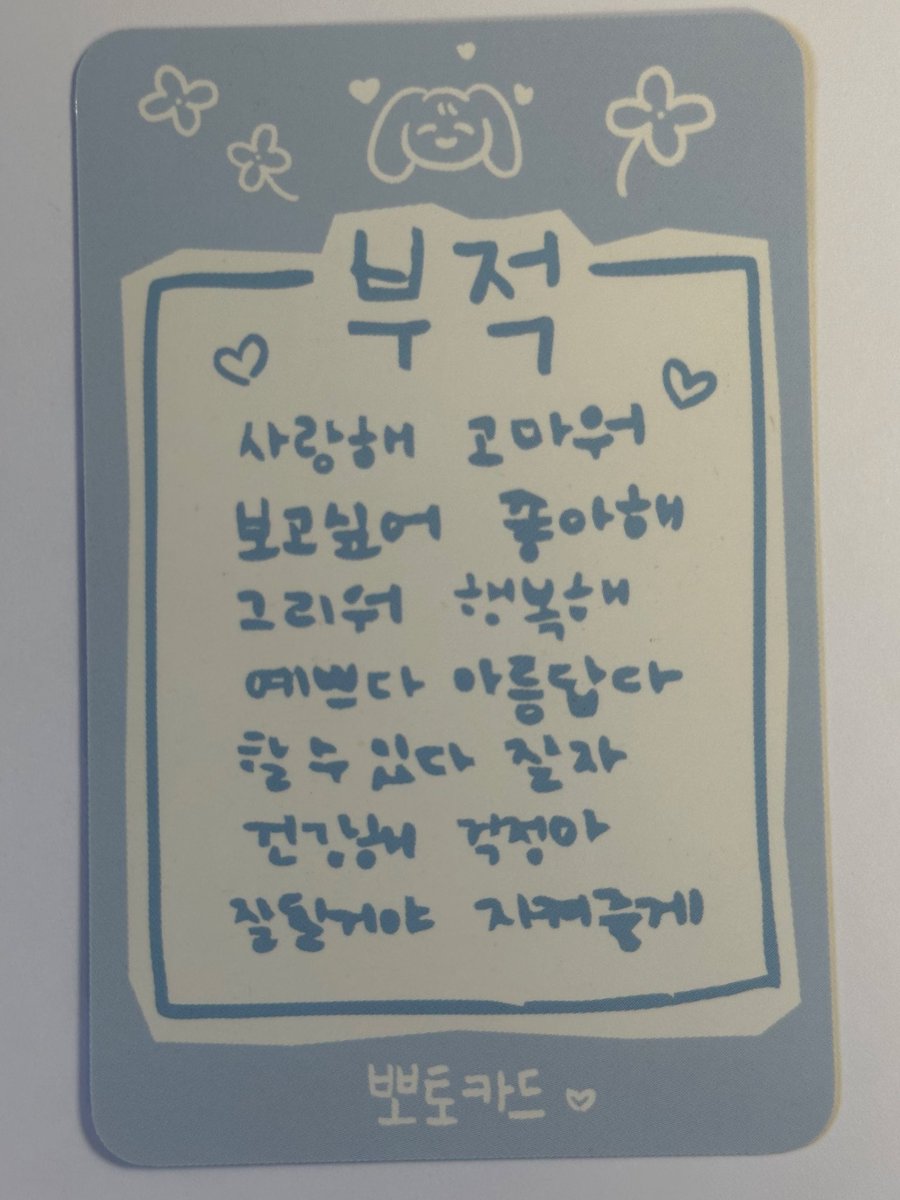 부적
사랑해 고마워
보고싶어 좋아해
그리워 행복해
예쁘다 아름답다
할 수 있다 잘자
건강해 걱정마
잘될거야 지켜줄게
뽀토카드